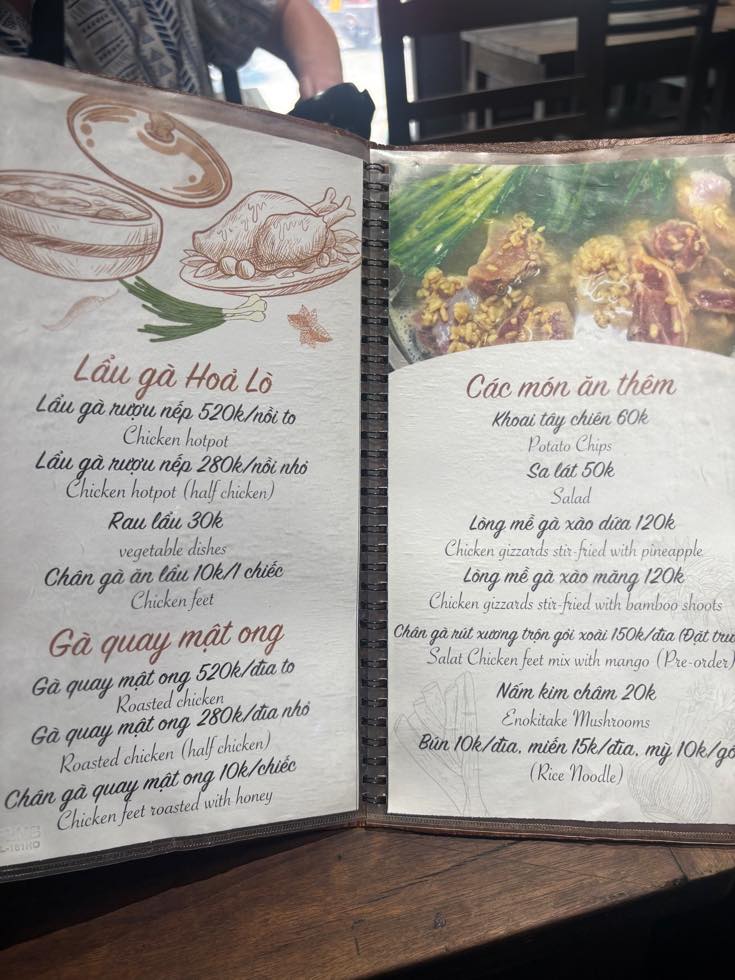 Lẩu gà Hoả Lò
Lẩu gà rượu nếp 520k/nồi to
Chicken hotpot
Lẩu gà rượu nếp 280k/nồi nhỏ
Chicken hotpot (half chicken)
Rau lẩu 30k
vegetable dishes
Chân gà ăn lẩu 10k/1 chiếc
Chicken feet
Gà quay mật ong
Gà quay mật ong 520k/đĩa to
Roasted chicken
Gà quay mật ong 280k/đĩa nhỏ
Roasted chicken (half chicken)
Chân gà quay mật ong 10k/chiếc
Chicken feet roasted with honey
Các món ăn thêm
Khoai tây chiên 60k
Potato Chips
Sa lát 50k
Salad
Lòng mề gà xào dứa 120k
Chicken gizzards stir-fried with pineapple
Lòng mề gà xào măng 120k
Chicken gizzards stir-fried with bamboo shoots
Chân gà rút xương trộn gỏi xoài 150k/đĩa (Đặt
Salat Chicken feet mix with mango (Pre-order)
Nấm kim châm 20k
Enokitake Mushrooms
Bún 10k/đĩa, miến 15k/đĩa, mỳ 10k/gó
(Rice Noodle)